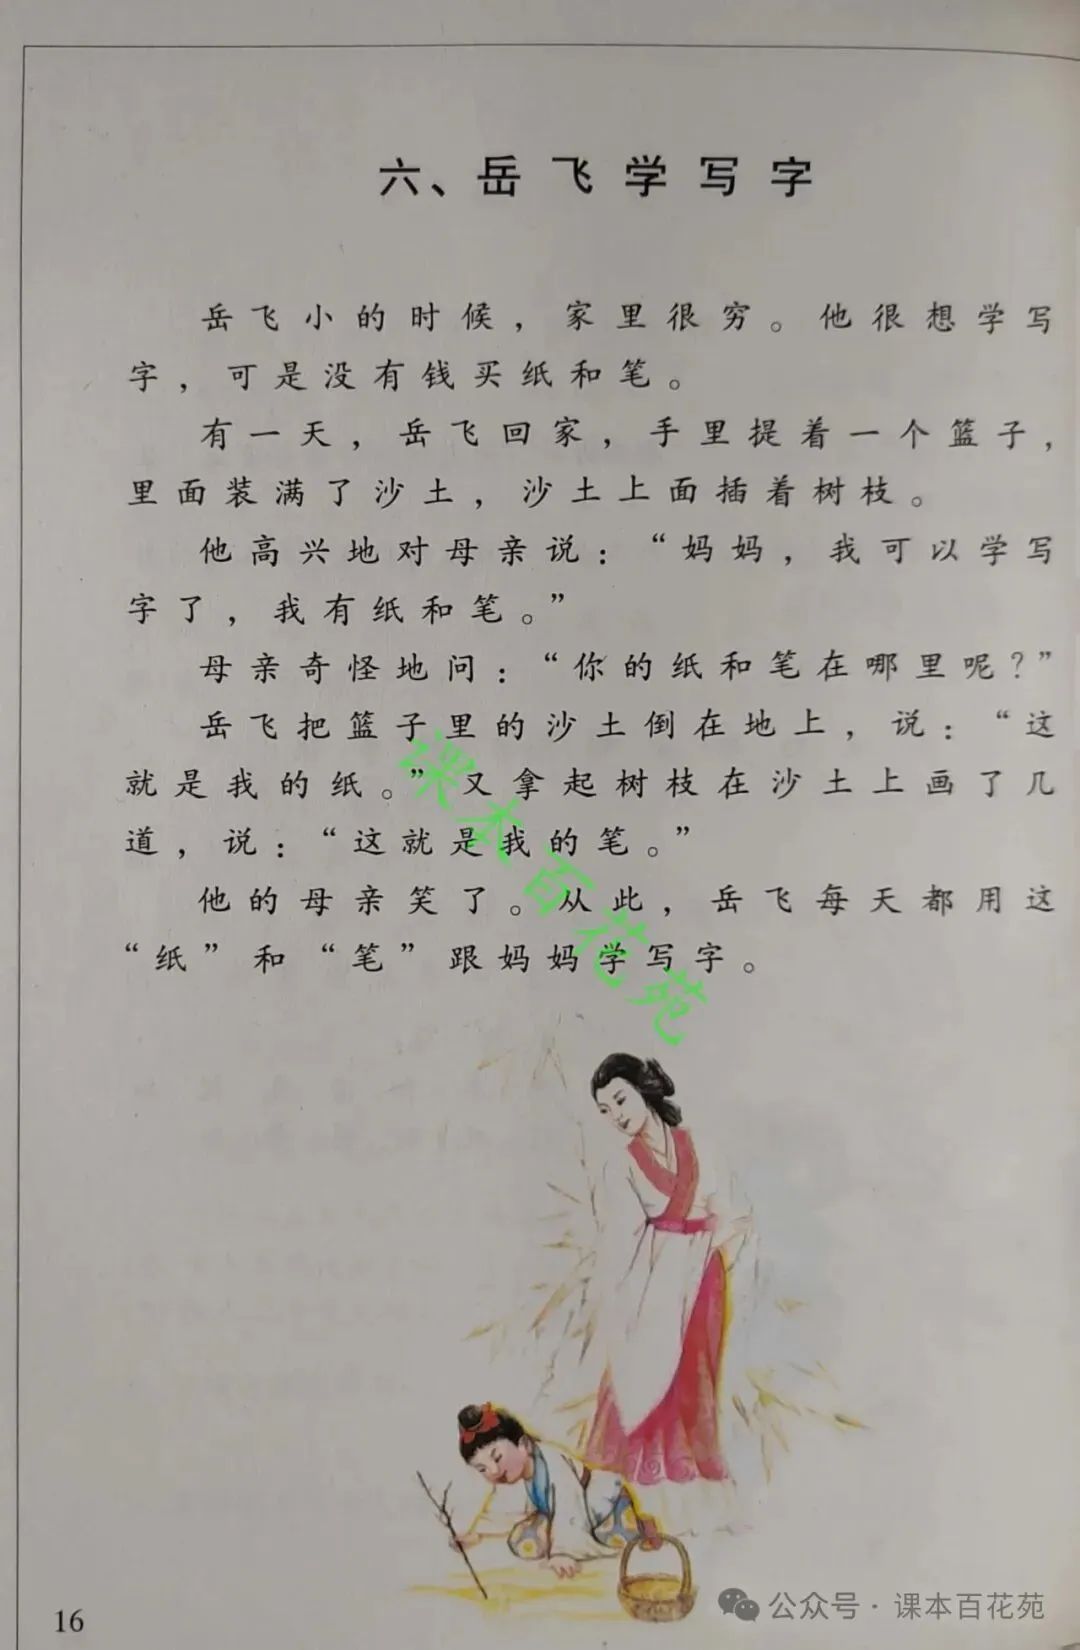 六、岳飞学写字
岳飞小的时候，家里很穷。他很想学写
字，可是没有钱买纸和笔。
有一天，岳飞回家，手里提着一个篮子，
里面装满了沙土，沙土上面插着树枝。
他高兴地对母亲说：“妈妈，我可以学写
字了，我有纸和笔。”
母亲奇怪地问：“你的纸和笔在哪里呢？”
岳飞把篮子里的沙土倒在地上，说：“这
就是我的纸。”又拿起树枝在沙土上画了几
道，说：“这就是我的笔。”
他的母亲笑了。从此，岳飞每天都用这
“纸”和“笔”跟妈妈学写字。
课本百花苑
16
公众号·课本百花苑